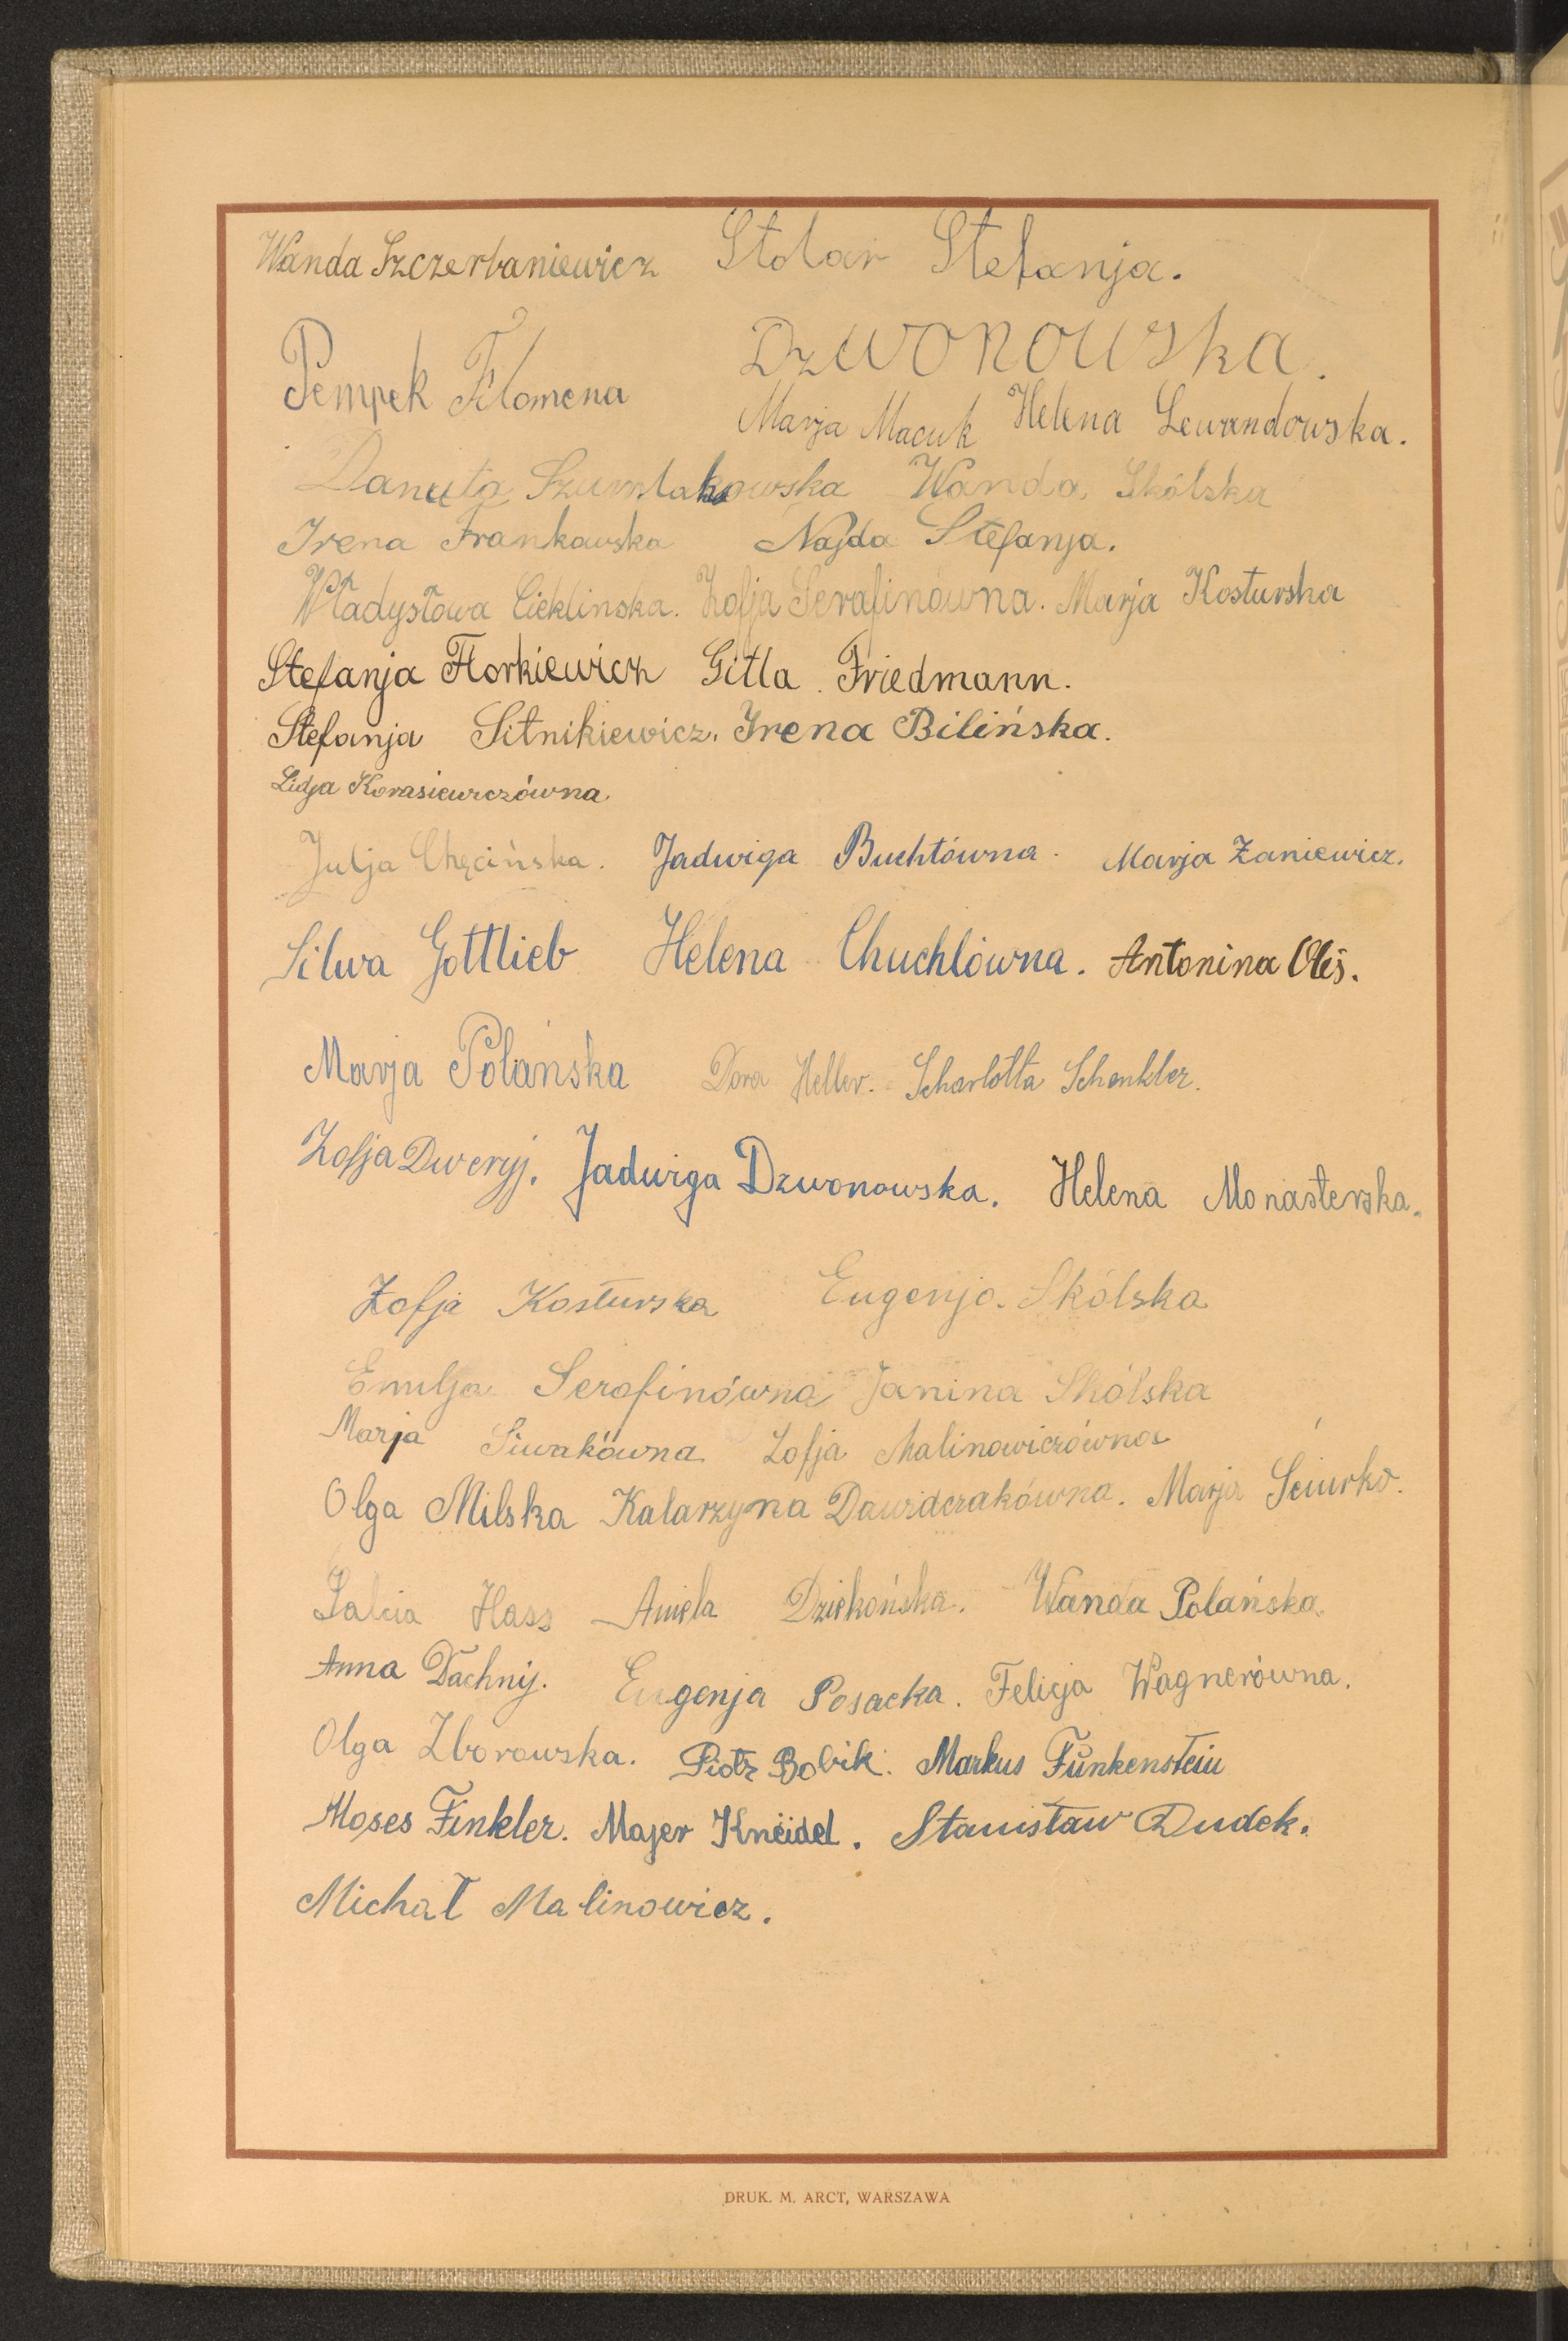 Wanda Szczerbaniewicz Stolar Stefanja.
Dzwonowska.
Pempek Filomena
Marja Macuk Helena Lewandowska.
Danuta Szumlakowska Wanda Skólska
Irena Frankowska Najda Stefanja.
Władysława Cieklinska. Zofja Serafinówna. Marja Kosturska
Stefanja Florkiewicz Gitla Friedmann.
Stefanja Sitnikiewicz. Irena Bilińska.
Lidja Korasiewiczówna
Julja Chęcińska. Jadwiga Buchtówna. Marja Zaniewicz.
Silwa Gottlieb Helena Chuchlówna. Antonina Oleś.
Marja Polańska Dora Heller. Scharlotta Schenkler.
Zofja Dweryj. Jadwiga Dzwonowska. Helena Monasterska.
Zofja Kosturska Eugenja Skólska
Emilja Serafinówna Janina Skólska
Marja Siwakówna Zofja Malinowiczówna
Olga Milska Katarzyna Dawiderakówna. Marja Sciurko.
Salcia Hass Aniela Dziekońska. Wanda Polańska.
Anna Dachnij. Eugenja Posacka. Felicja Wagnerówna.
Olga Zborowska. Piotr Bobik. Markus Funkenstein
Moses Finkler. Majer Kneidel. Stanisław Dudek.
Michał Malinowicz.
DRUK. M. ARCT, WARSZAWA